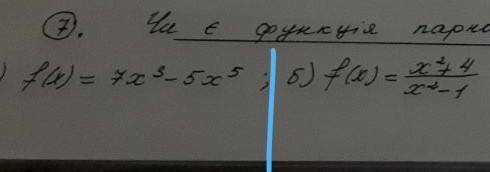 7. Чи є функція парно
) f(x) = 7x³ - 5x⁵ ; б) f(x) = (x² + 4)/(x² - 1)